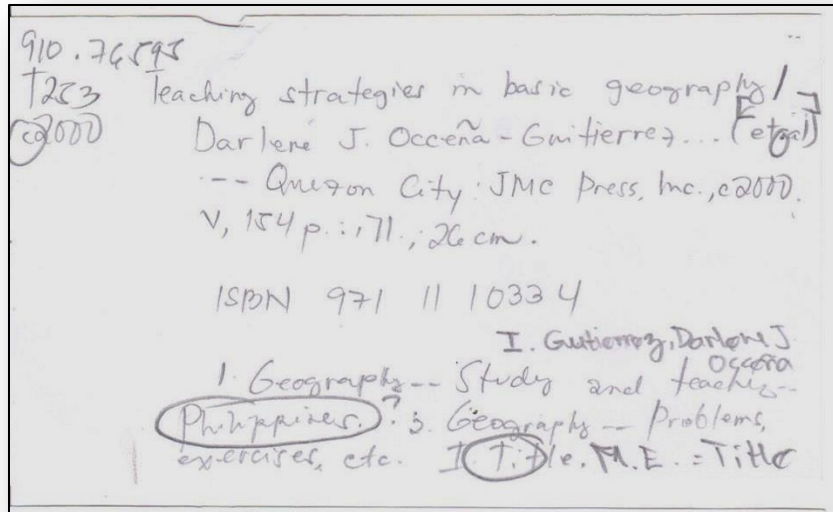 910.76595
T253 Teaching strategies in basic geography /
c2000 Darlene J. Occeña-Guitierrez... [et.al]
-- Quezon City: JMC Press, Inc., c2000.
V, 154 p. : ill. ; 26 cm.
ISBN 971 11 1033 4
I. Gutierrez, Darlene J.
Occeña
1. Geography -- Study and teaching--
Philippines. ? 3. Geography -- Problems,
exercises, etc. I Title. M.E. = Title